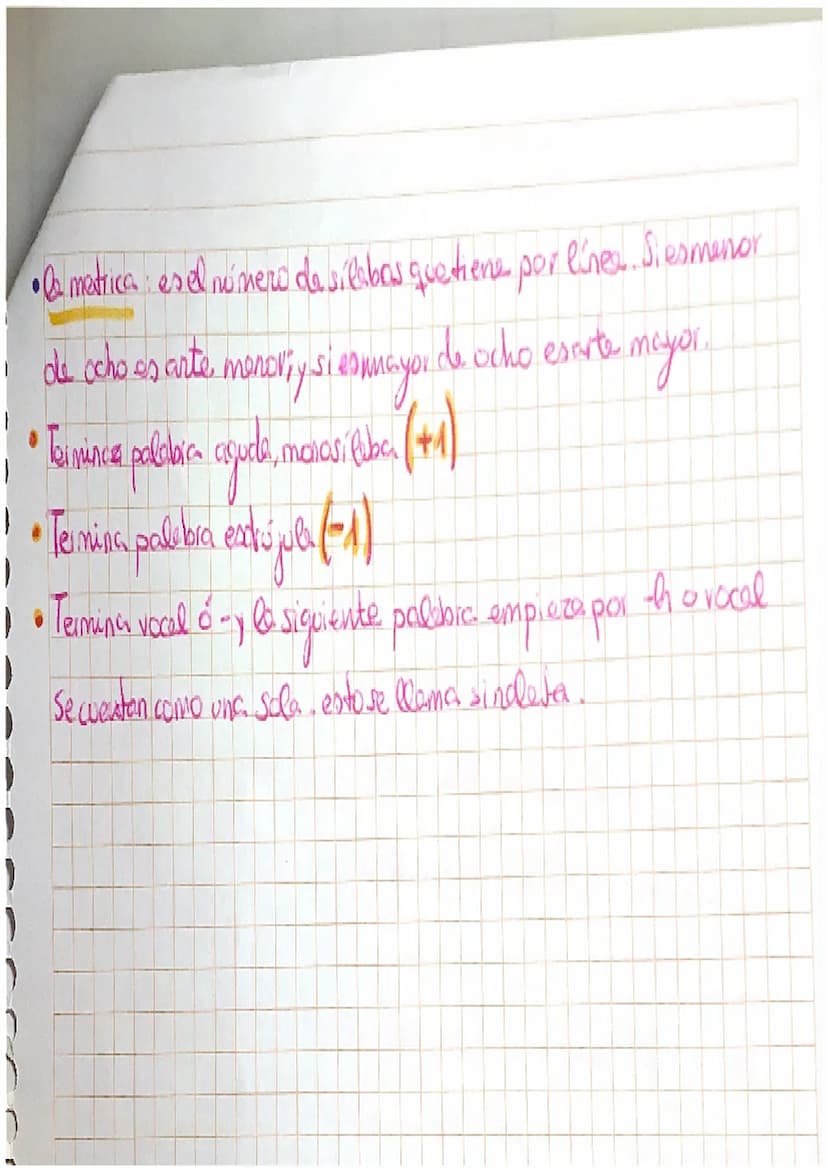 • La metrica: es el número de sílabas que tiene por línea. Si es menor
de ocho es arte menor; y si es mayor de ocho es arte mayor.
• Termina palabra aguda, monosílaba (+1)
• Termina palabra esdrújula (-1)
• Termina vocal ó -y la siguiente palabra empieza por -h o vocal
se cuentan como una sola. esto se llama sinalefa.